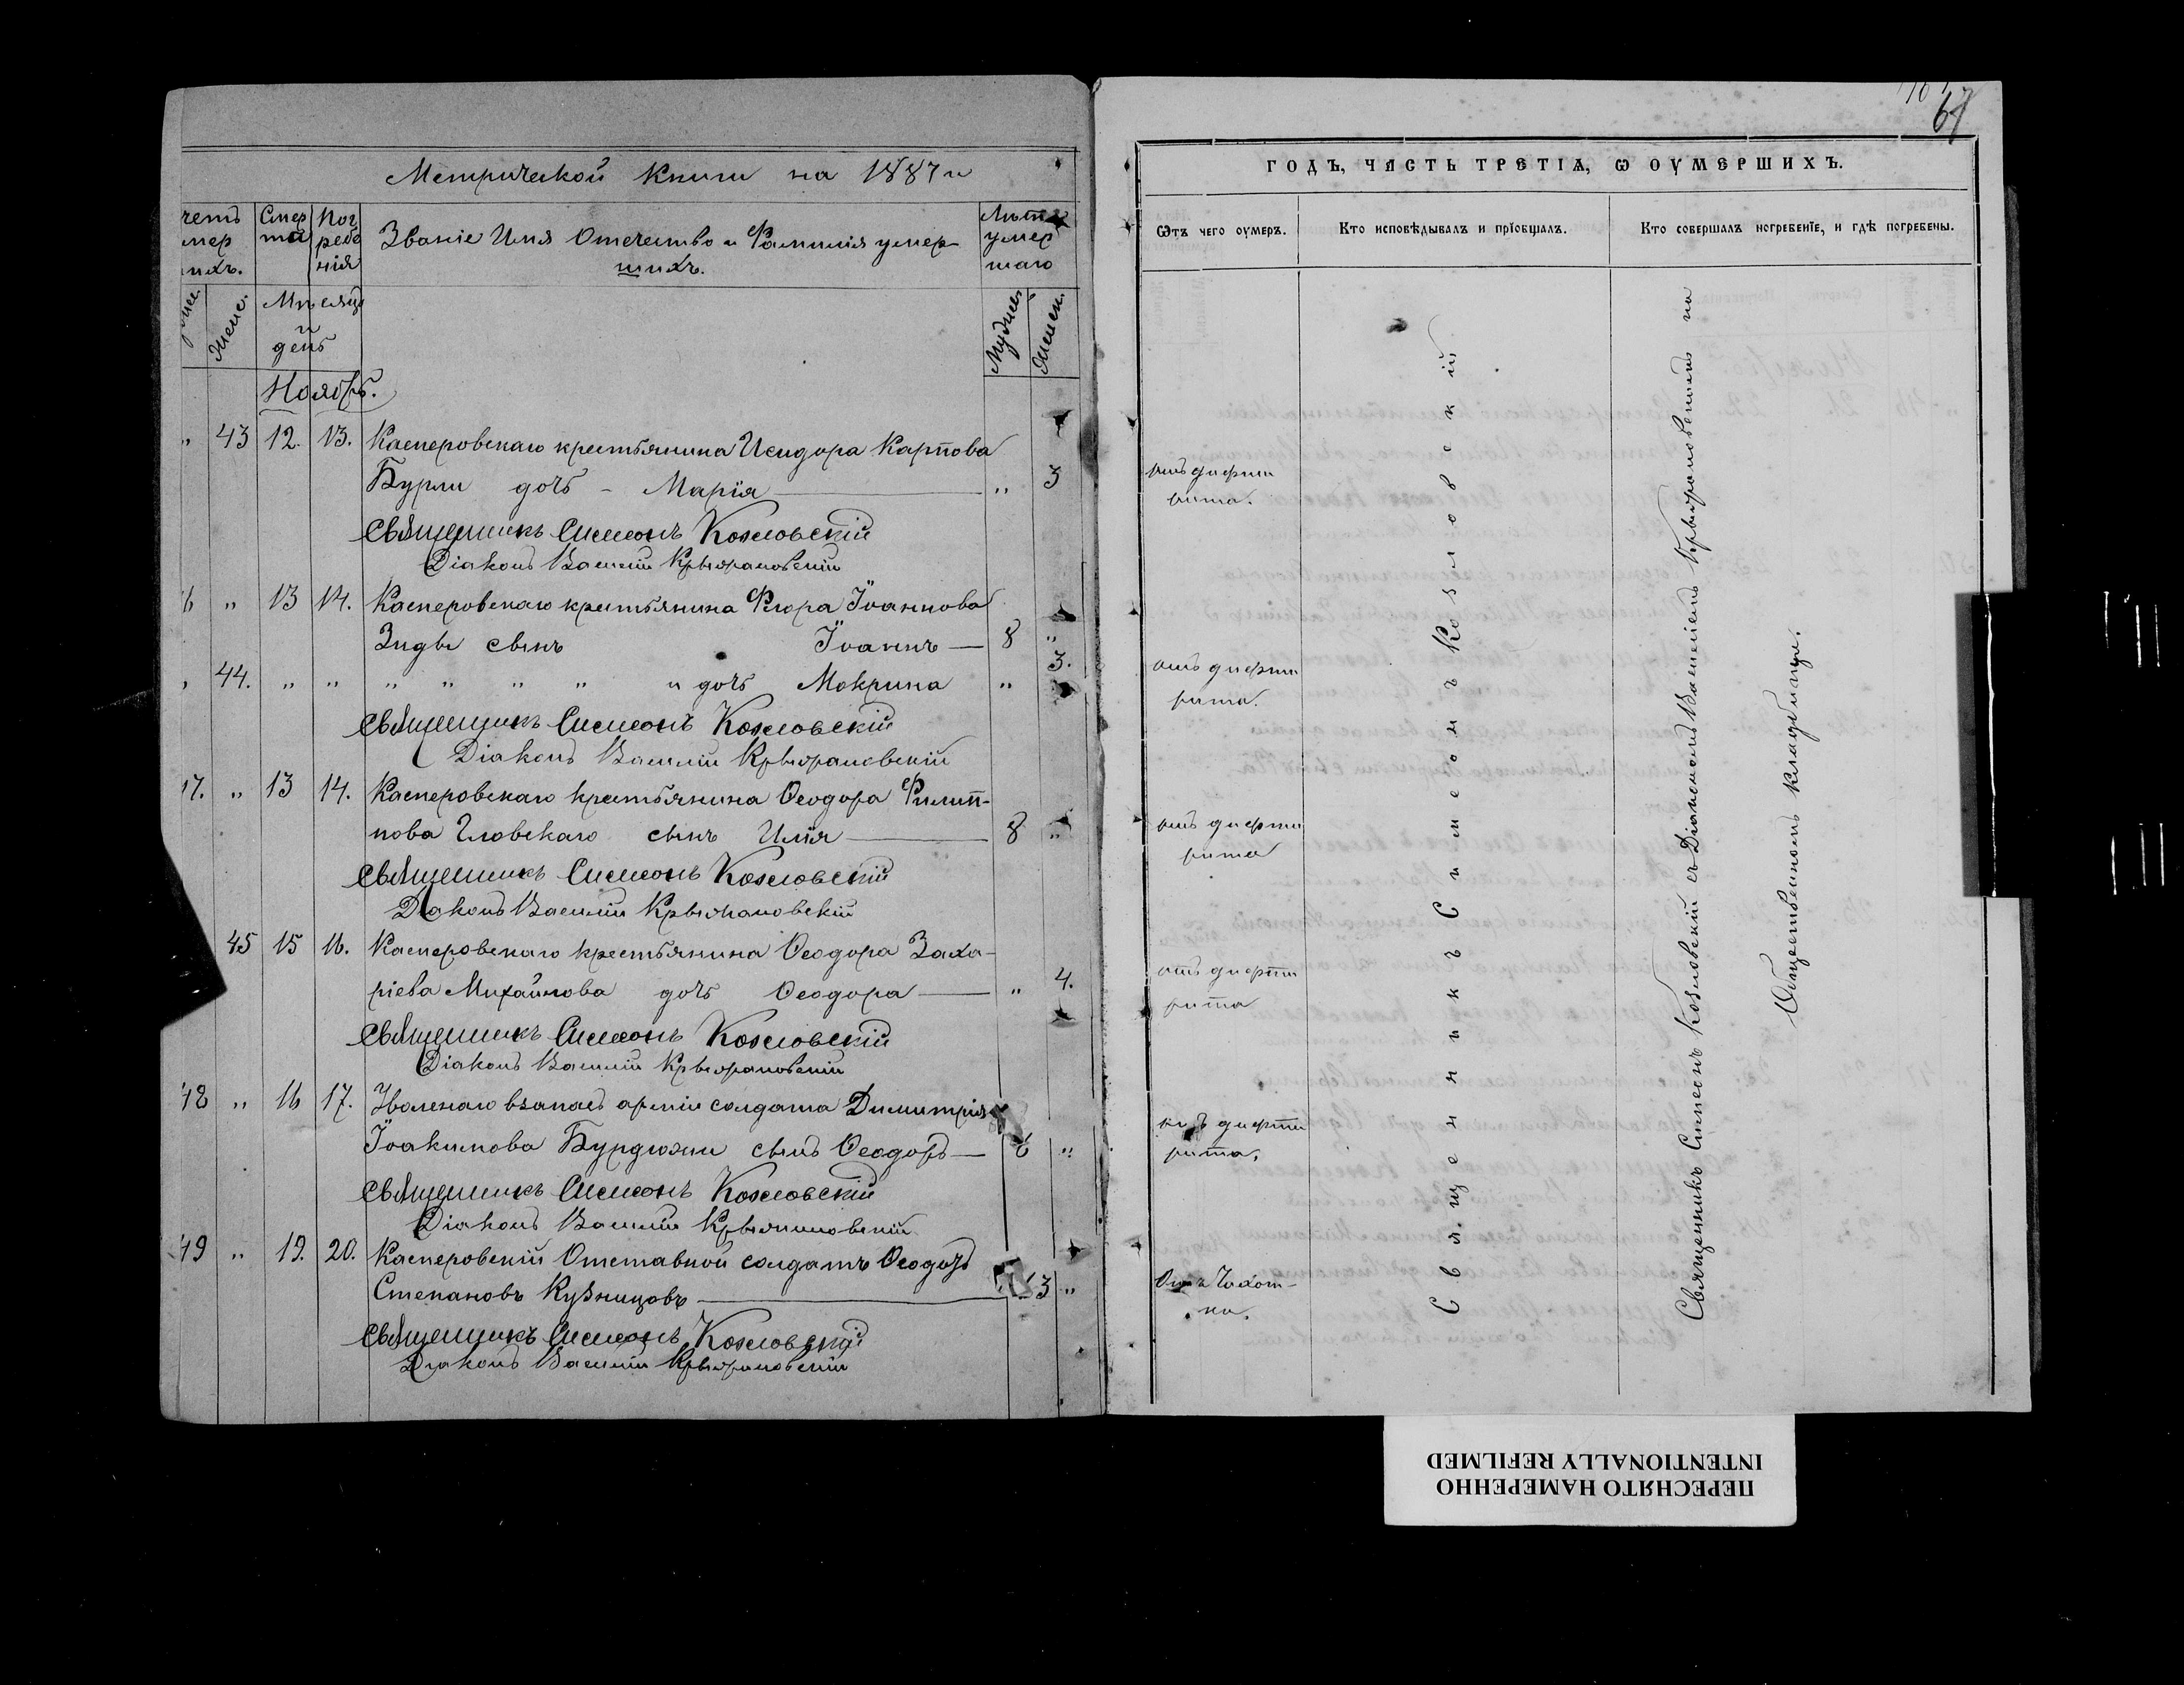 Метрической Книги на 1887 й
четъ
мер
ихъ.
Смер
ти
Пог
ребе
нія
Званіе Имя Отечество и Фамилія умер-
шихъ.
Лѣта
умер
шаго
Женс.
Мѣсяцъ
и
день
Мужес.
Женск.
Ноябрь.
" 43 12. 13. Касперовскаго крестьянина Исидора Карпова
Бурли дочь - Марія — " 3
Священникъ Симеонъ Козловскій
Діаконъ Василій Крыжановскій
6 " 13 14. Касперовскаго крестьянина Флора Іоаннова
сынъ Іоаннъ — 8 "
" 44. " " " " " " и дочь Макрина " 3.
Священникъ Симеонъ Козловскій
Діаконъ Василій Крыжановскій
17. " 13 14. Касперовскаго крестьянина Ѳеодора Филип-
пова сынъ Илія — 8 "
Священникъ Симеонъ Козловскій
Діаконъ Василій Крыжановскій
45 15 16. Касперовскаго крестьянина Ѳеодора Заха-
ріева Михайлова дочь Ѳеодора — " 4.
Священникъ Симеонъ Козловскій
Діаконъ Василій Крыжановскій
48 " 16 17. Уволенаго взапасъ арміи солдата Димитрія
Іоакимова Бурдюжи сынъ Ѳеодоръ — "
Священникъ Симеонъ Козловскій
Діаконъ Василій Крыжановскій
49 " 19. 20. Касперовскій Отставной солдатъ Ѳеодоръ
Степановъ Кузницовъ — 3 "
Священникъ Симеонъ Козловскій
Діаконъ Василій Крыжановскій
67
ГОДЪ, ЧАСТЬ ТРЕТІѦ, Ѡ ОУМЕРШИХЪ.
Ѿтъ чего оумеръ.
Кто исповѣдывалъ и прїобщалъ.
Кто совершалъ погребенїе, и гдѣ погребены.
отъ дифти
рита.
отъ дифти
рита.
отъ дифти
рита
отъ дифти
рита
отъ дифти
рита.
Отъ Чахот-
ки.
Священникъ Симеонъ Козловскій
Священникъ Симеонъ Козловскій съ Діакономъ Василіемъ Крыжановскимъ на
Общественномъ кладбищѣ.
ПЕРЕСНЯТО НАМЕРЕННО
INTENTIONALLY REFILMED